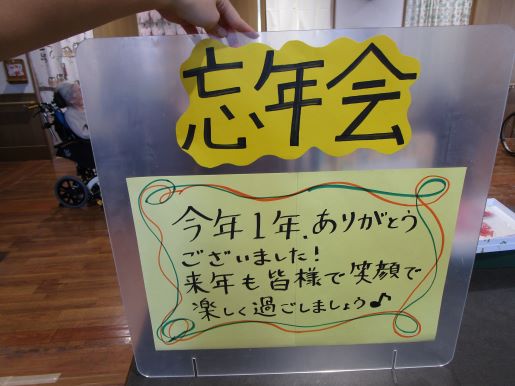 忘年会
今年1年、ありがとう
ございました!
来年も皆様で笑顔で
楽しく過ごしましょう♪